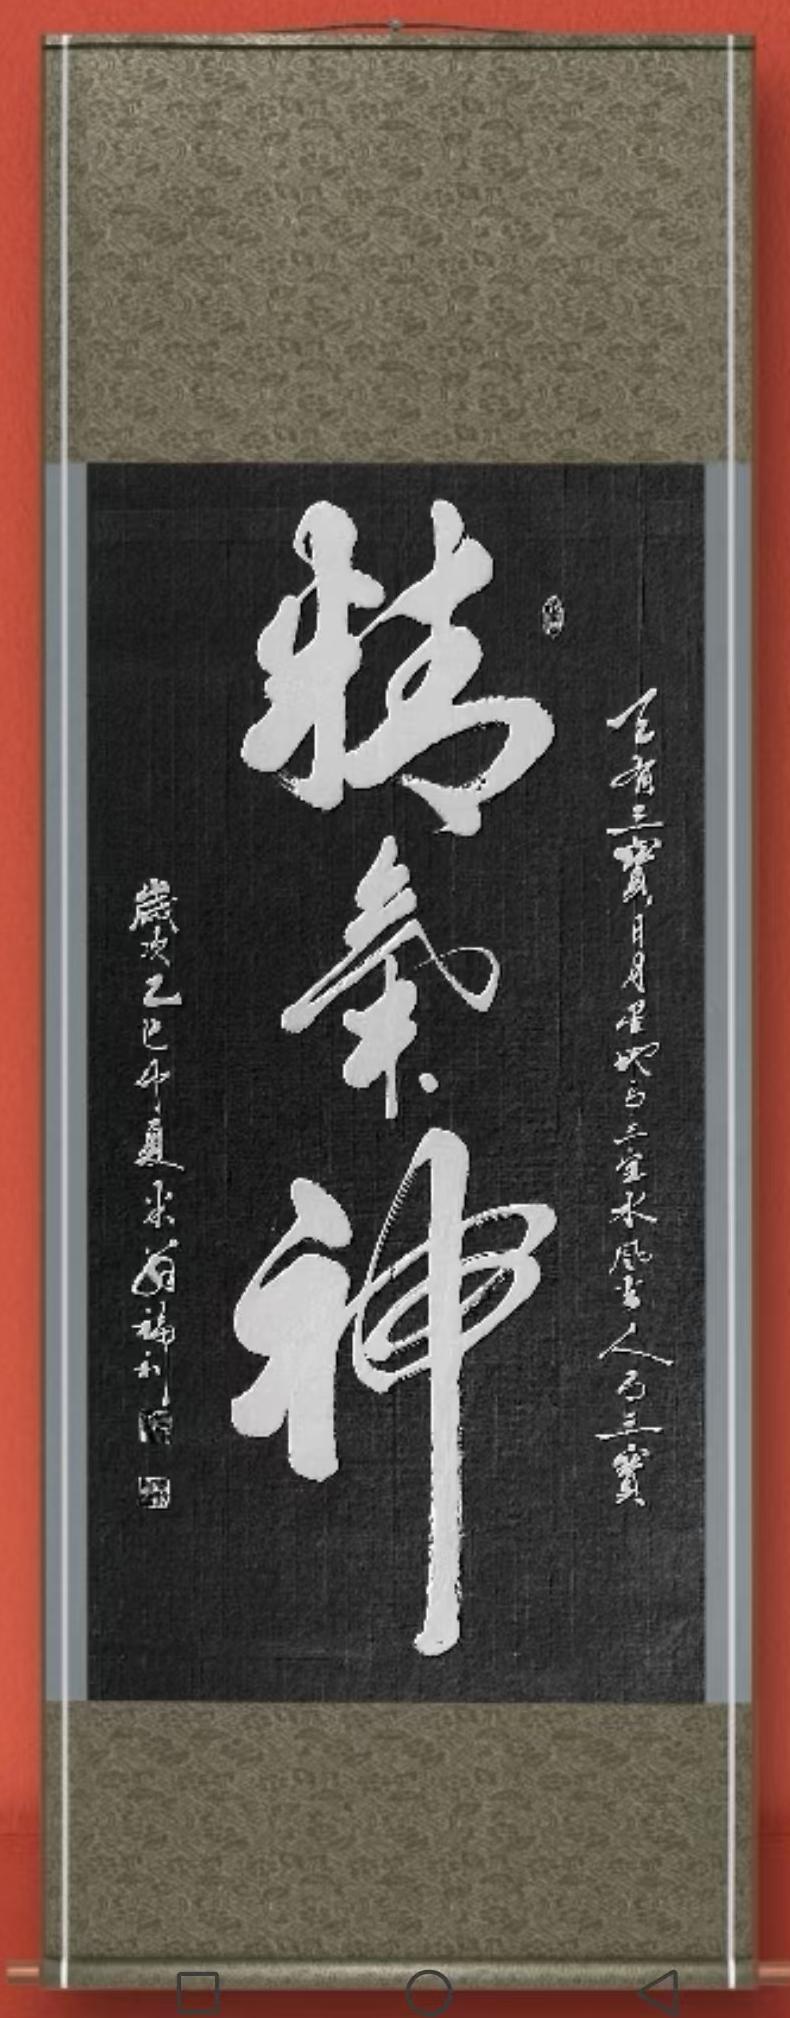 天有三寶日月星地有三宝水風火人有三寶
精氣神
歲次乙巳仲夏翁福利